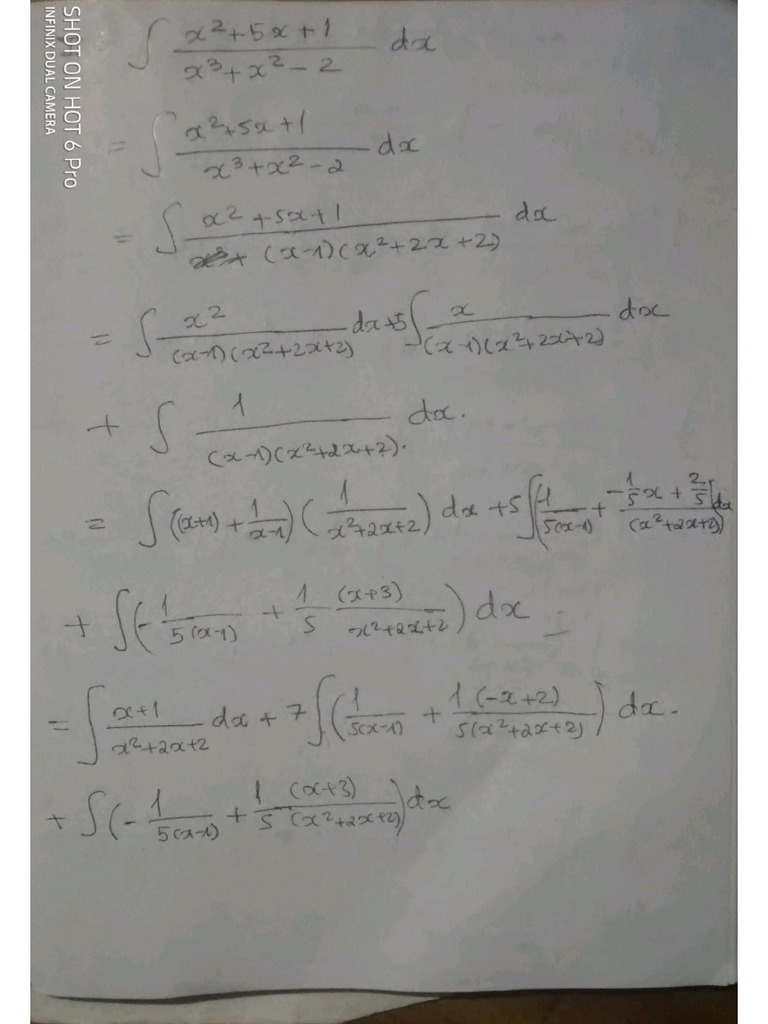 SHOT ON HOT 6 Pro
INFINIX DUAL CAMERA
∫ (x²+5x+1)/(x³+x²-2) dx
= ∫ (x²+5x+1)/(x³+x²-2) dx
= ∫ (x²+5x+1)/((x-1)(x²+2x+2)) dx
= ∫ x²/((x-1)(x²+2x+2)) dx+5 ∫ x/((x-1)(x²+2x+2)) dx
+ ∫ 1/((x-1)(x²+2x+2)). dx.
= ∫ ((x+1) + 1/(x-1)) (1/(x²+2x+2)) dx +5 ∫ (1/(5(x-1)) + (-1/5 x + 2/5)/(x²+2x+2)) dx
+ ∫ (-1/(5(x-1)) + 1/5 (x+3)/(x²+2x+2)) dx
= ∫ (x+1)/(x²+2x+2) dx + 7 ∫ (1/(5(x-1)) + 1(-x+2)/(5(x²+2x+2))) dx.
+ ∫ (-1/(5(x-1)) + 1/5 (x+3)/(x²+2x+2)) dx